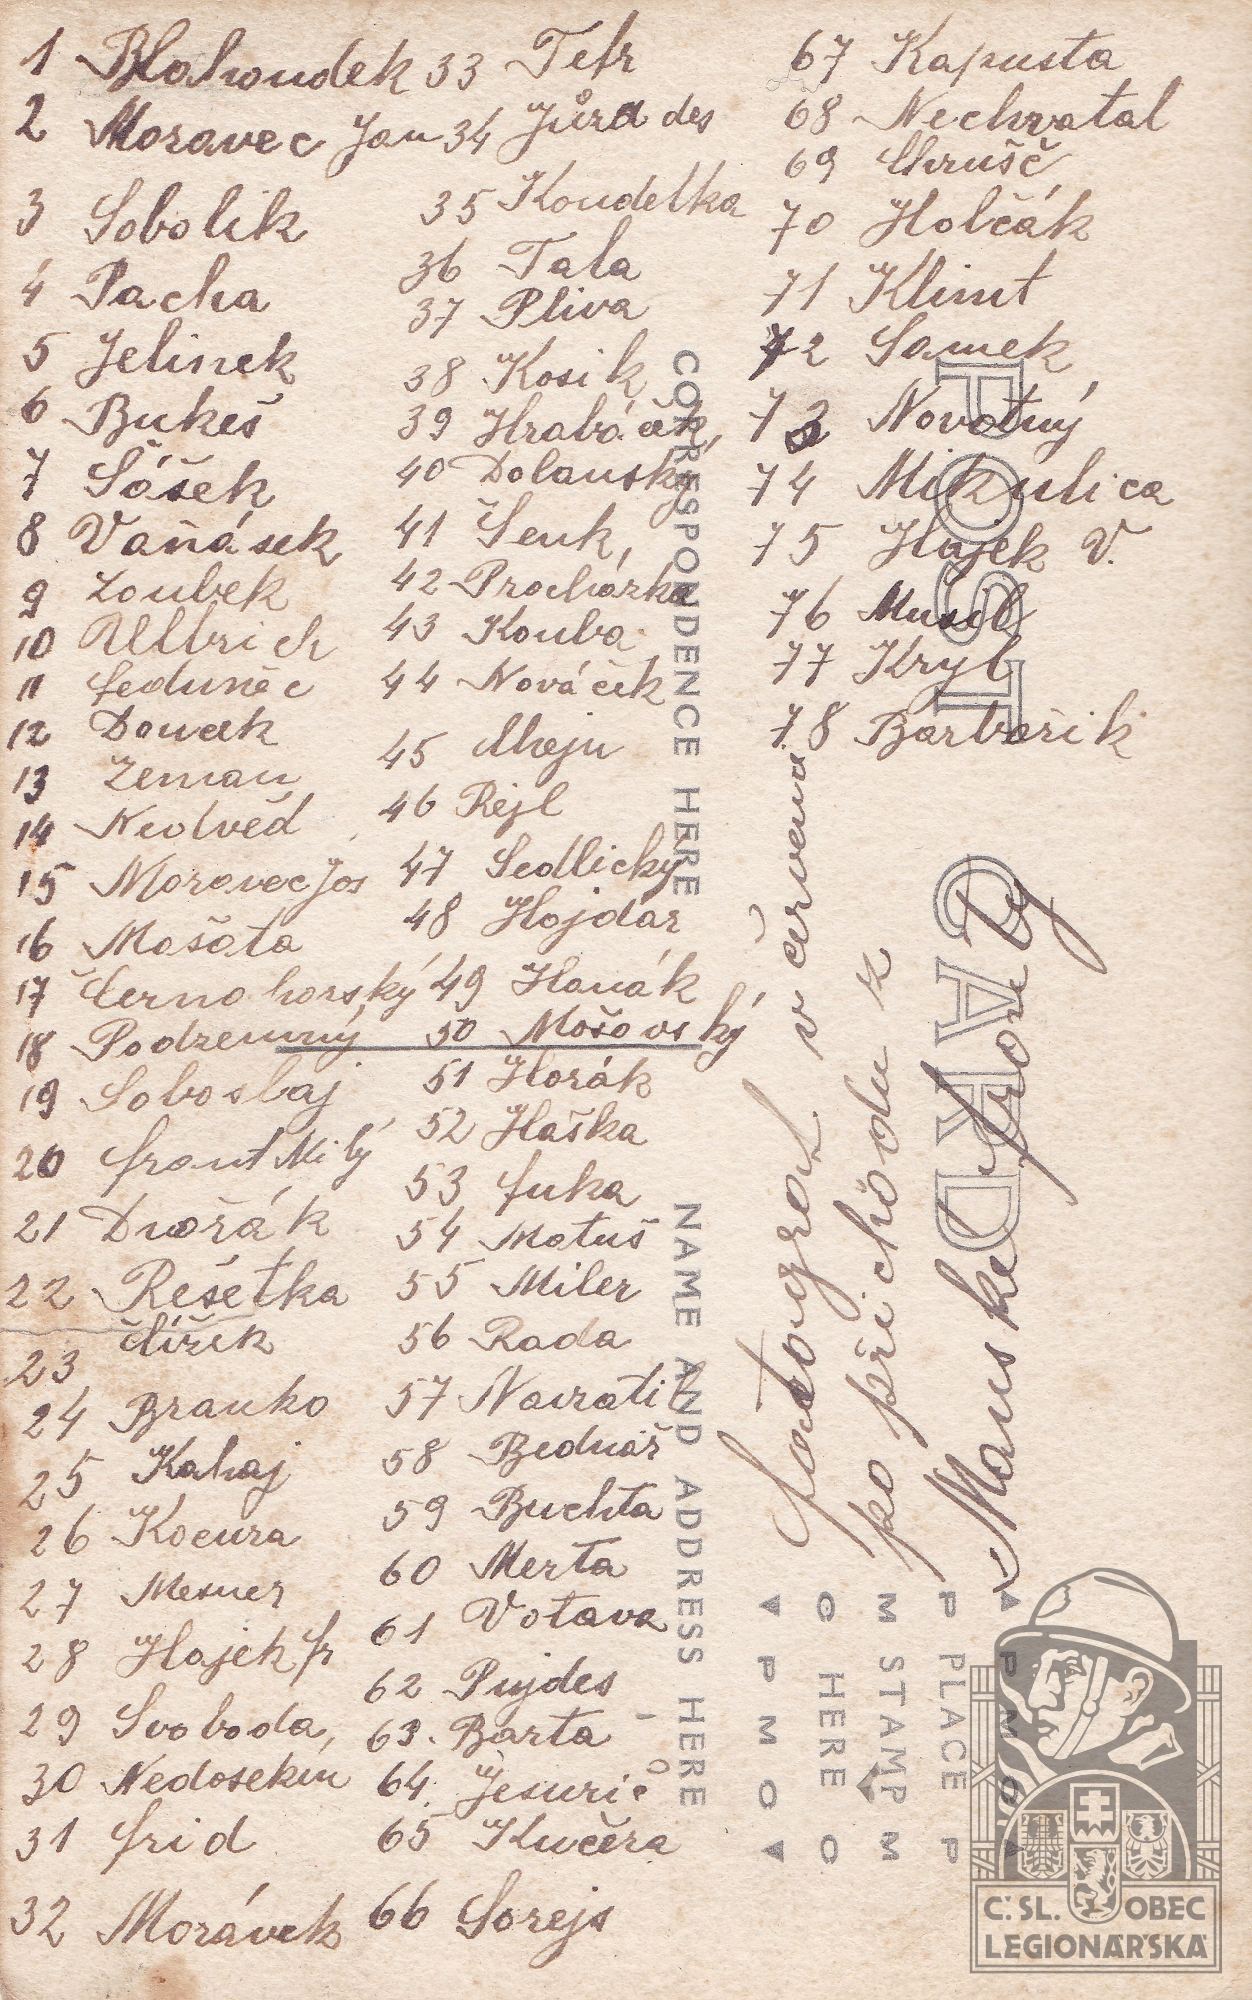 1 Blahoudek
2 Moravec Jan
3 Sobolik
4 Pacha
5 Jelinek
6 Bukeš
7 Šášek
8 Vaňásek
9 Zoubek
10 Ullrich
11 Feduněc
12 Dovcek
13 Zeman
14 Nedvěd
15 Moravec Jos
16 Mašata
17 Černohorský
18 Podzemný
19 Soboslaj
20 Frant Milý
21 Dvořák
22 Rešetka
23 Čížek
24 Branko
25 Kahaj
26 Kocura
27 Mesner
28 Hajek fr
29 Svoboda,
30 Nedosekin
31 Frid
32 Morávek
33 Tetr
34 Jůra des
35 Koudelka
36 Tala
37 Pliva
38 Kosik
39 Hrabáček,
40 Dolanský
41 Šenk,
42 Procházka
43 Kouba
44 Nováček
45 Uheju
46 Rejl
47 Sedlický
48 Hojdar
49 Hanák
50 Mošovský
51 Horák
52 Haška
53 Fuka
54 Matuš
55 Miler
56 Rada
57 Navratil
58 Bednář
59 Buchta
60 Merta
61 Votava
62 Pujdes
63. Barta
64. Jesurič
65 Kučera
66 Sorejs
67 Kapusta
68 Nechvatal
69 Uhrušč
70 Holčák
71 Klimt
72 Samek
73 Novotný
74 Mikulica
75 Hajek V.
76 Musil
77 Kryl
78 Barbořik
Fotografováno v červenci
po příchodu z
Manské fronty
POST CARD
CORRESPONDENCE HERE
NAME AND ADDRESS HERE
PMO
PLACE
STAMP
HERE
PMO
Č. SL. OBEC
LEGIONÁŘSKÁ